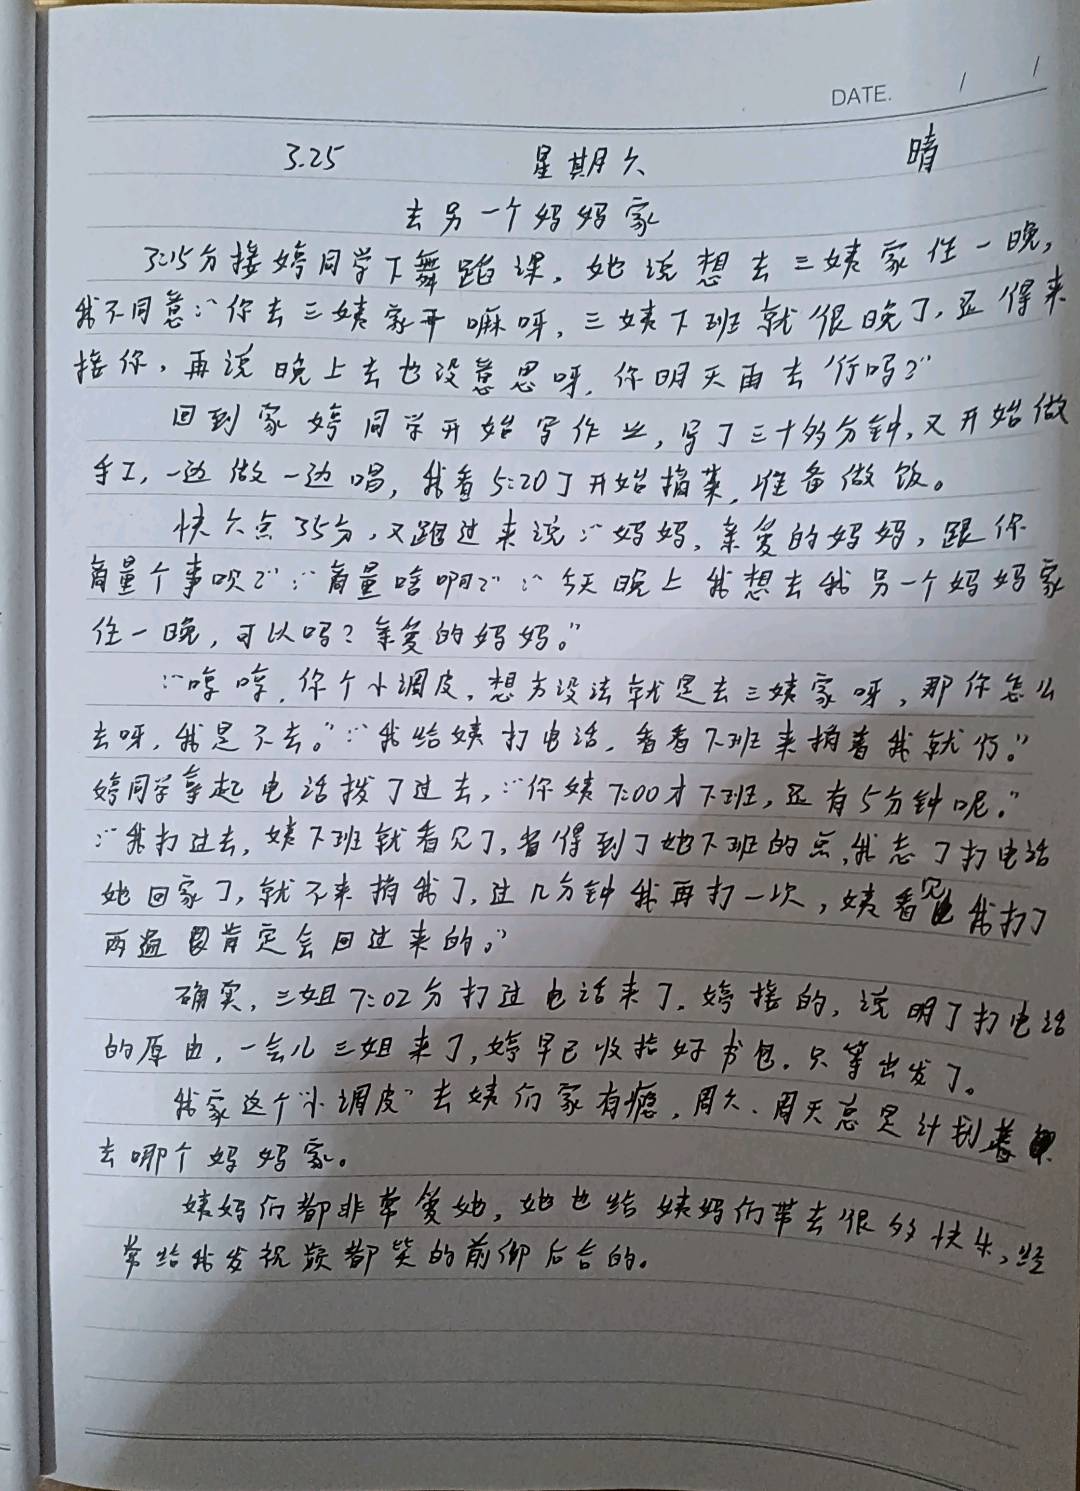 DATE. / /
3.25 星期六 晴
去另一个妈妈家
3:15分接婷同学下舞蹈课，她说想去三姨家住一晚，
我不同意：“你去三姨家干嘛呀，三姨下班就很晚了，还得来
接你，再说晚上去也没意思呀，你明天再去行吗？”
回到家婷同学开始写作业，写了三十多分钟，又开始做
手工，一边做一边唱，我看5:20了开始摘菜，准备做饭。
快六点35分，又跑过来说：“妈妈，亲爱的妈妈，跟你
商量个事呗？”：“商量啥啊？”：“今天晚上我想去我另一个妈妈家
住一晚，可以吗？亲爱的妈妈。”
：“哼哼，你个小调皮，想方设法就是去三姨家呀，那你怎么
去呀，我是不去。”：“我给姨打电话，看看下班来捎着我就行。”
婷同学拿起电话拨了过去，：“你姨7:00才下班，还有5分钟呢。”
：“我打过去，姨下班就看见了，省得到了她下班的点，我忘了打电话
她回家了，就不来捎我了，过几分钟我再打一次，姨看见我打了
两遍肯定会回过来的。”
确实，三姐7:02分打过电话来了，婷接的，说明了打电话
的原由，一会儿三姐来了，婷早已收拾好书包，只等出发了。
我家这个“小调皮”去姨们家有瘾，周六、周天总是计划着
去哪个妈妈家。
姨妈们都非常爱她，她也给姨妈们带去很多快乐，经
常给我发视频都笑的前仰后合的。